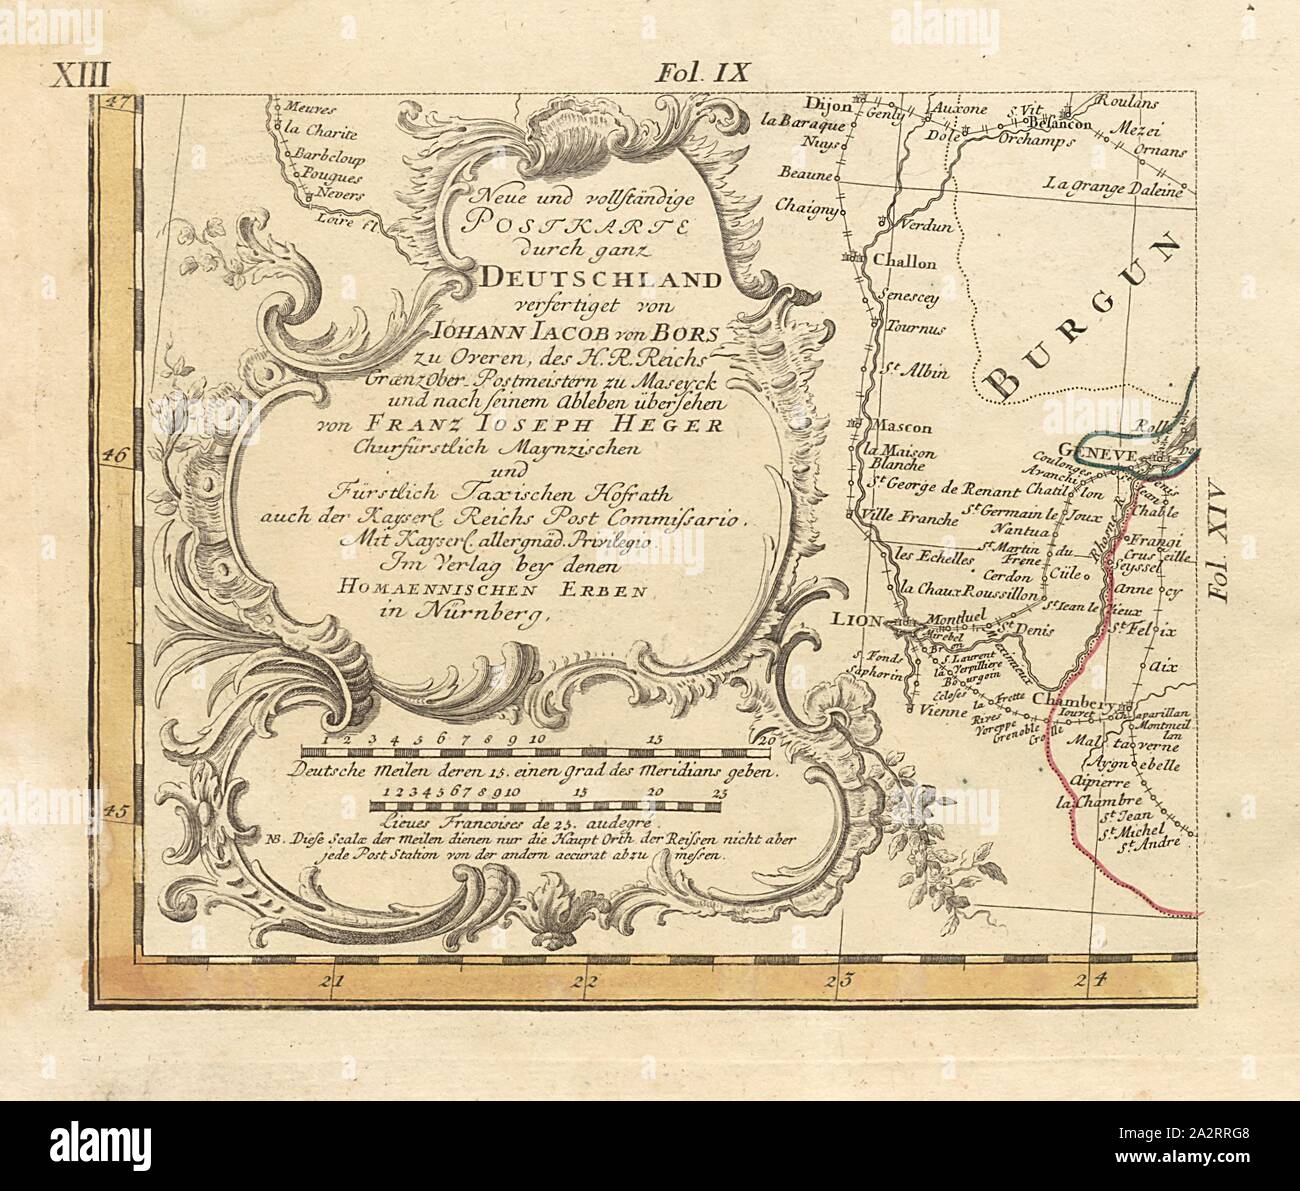 XIII
Fol. IX
47
Meuves
la Charite
Barbeloup
Pougues
Nevers
Loire fl
Neue und vollständige
POSTKARTE
durch ganz
DEUTSCHLAND
verfertiget von
IOHANN IACOB von BORS
zu Overen, des H. R. Reichs
Grænz Ober-Postmeistern zu Maseyck
und nach seinem Ableben übersehen
von FRANZ IOSEPH HEGER
Churfürstlich Maynzischen
und
Fürstlich Taxischen Hofrath
auch der Kayserl. Reichs Post Commissario.
Mit Kayserl. allergnäd. Privilegio.
Im Verlag bey denen
HOMAENNISCHEN ERBEN
in Nürnberg.
1 2 3 4 5 6 7 8 9 10 15 20
Deutsche Meilen deren 15. einen grad des Meridians geben.
1 2 3 4 5 6 7 8 9 10 15 20 25
Lieues Francoises de 25. au degré.
NB. Diese Scalæ der Meilen dienen nur die Haupt Orth der Reissen nicht aber
jede Post Station von der andern accurat abzu messen.
Dijon
Genly
Auxone
Dole
S. Vit
Besancon
Orchamps
Roulans
Mezei
Ornans
La grange Daleine
la Baraque
Nuys
Beaune
Chaigny
Verdun
Challon
Senescey
Tournus
St Albin
BURGUN
Mascon
la Maison
Blanche
St George de Renant
Ville Franche
Rolle
GENEVE
Coulonges
Avanchi
Chatillon
St Germain le Joux
Nantua
St Martin du
Frene
Cerdon
Cüle
les Echelles
la Chaux
Roussillon
St Jean le Vieux
Rhosne
Jean
Chable
Frangi
Crus eille
Seyssel
Anne cy
St Felix
Aix
LION
Montluel
St Denis
Mirebel
Bron
Meximieux
S. Fonds
Saphorin
S. Laurent
la Verpilliere
Bourgoin
Ecloses
la Frette
Vienne
Rives
Voreppe
Grenoble
Crolle
Iouret
Chambery
Chaparillan
Montmeil
lan
Mal taverne
Aygnebelle
Aipierre
la Chambre
St Jean
St Michel
St Andre
46
45
21
22
23
24
Fol. XIV
alamy
Image ID: 2A2RRG8
www.alamy.com